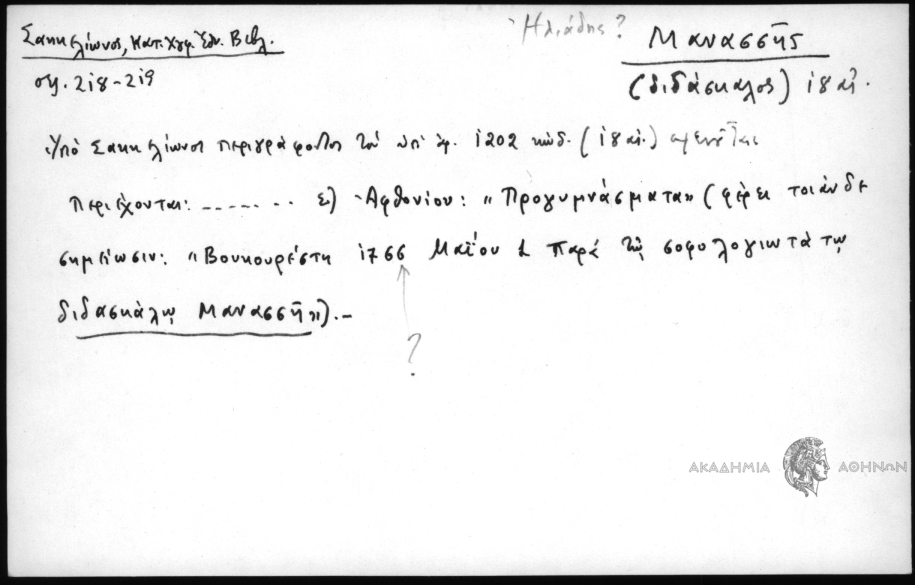 Σακκελίωνος, Κατ. Χγφ. Ἐθν. Βιβλ.
σελ. 218-219
Ἠλιάδης?
Μανασσῆς
(διδάσκαλος) 18 αἰ.
Ὑπὸ Σακκελίωνος περιγράφοντος τὸν ὑπ' ἀρ. 1202 κώδ. (18 αἰ.)
περιέχονται: ....... ε) Ἀφθονίου: "Προγυμνάσματα" (φέρει τοιάνδε
σημείωσιν: "Βουκουρέστη 1766 Μαΐου 1 παρὰ τῷ σοφολογιωτάτῳ
διδασκάλῳ Μανασσῇ").-
?
ΑΚΑΔΗΜΙΑ ΑΘΗΝΩΝ